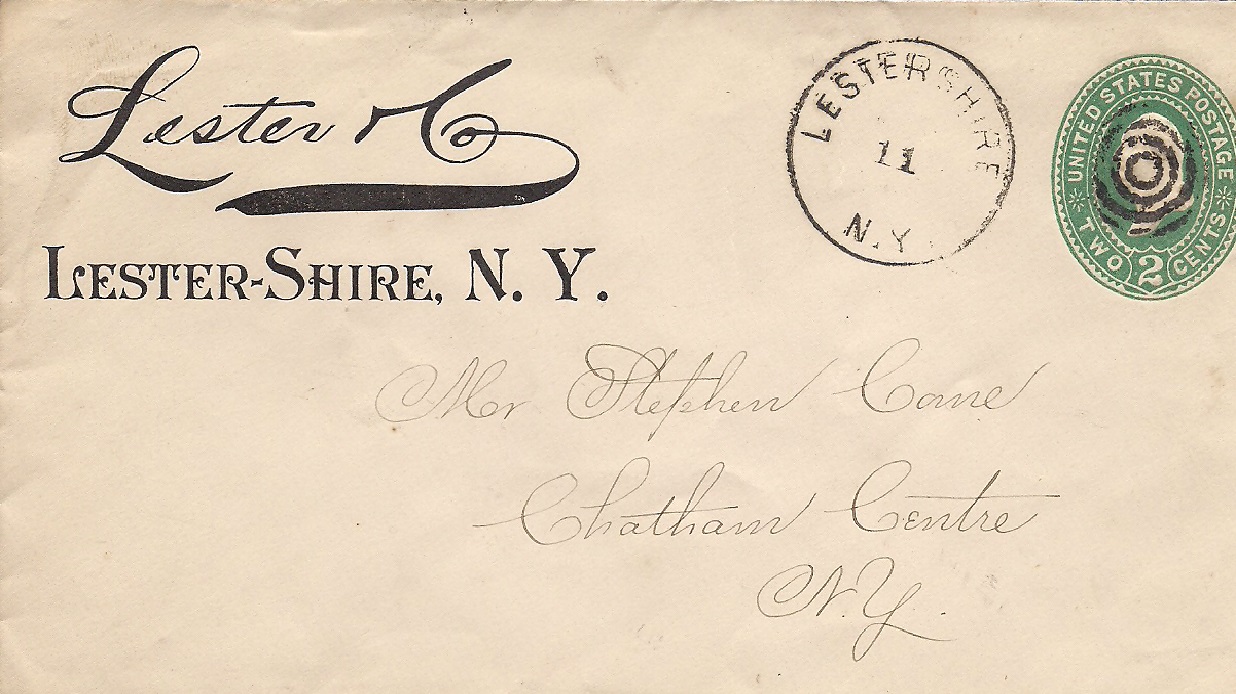 Lester & Co
LESTER-SHIRE, N. Y.
LESTERSHIRE
11
N.Y.
UNITED STATES POSTAGE
TWO 2 CENTS
Mr Stephen Cane
Chatham Centre
N.Y.